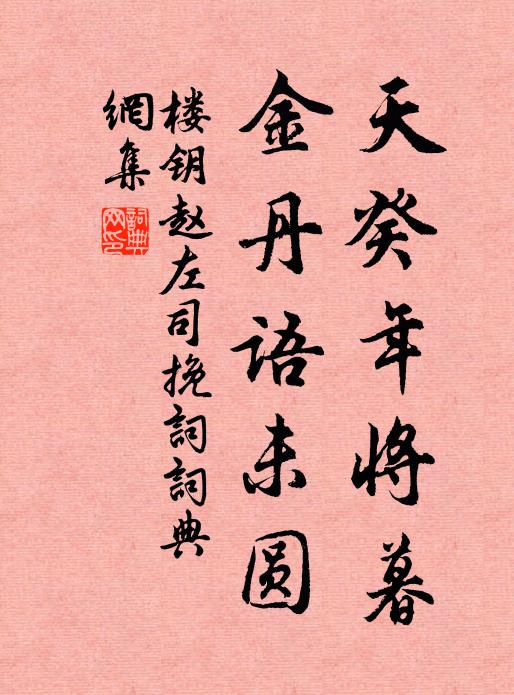 天癸年将暮
金丹語未圆
楼钥赵左司挽詞詞典
網集
詞典
网印